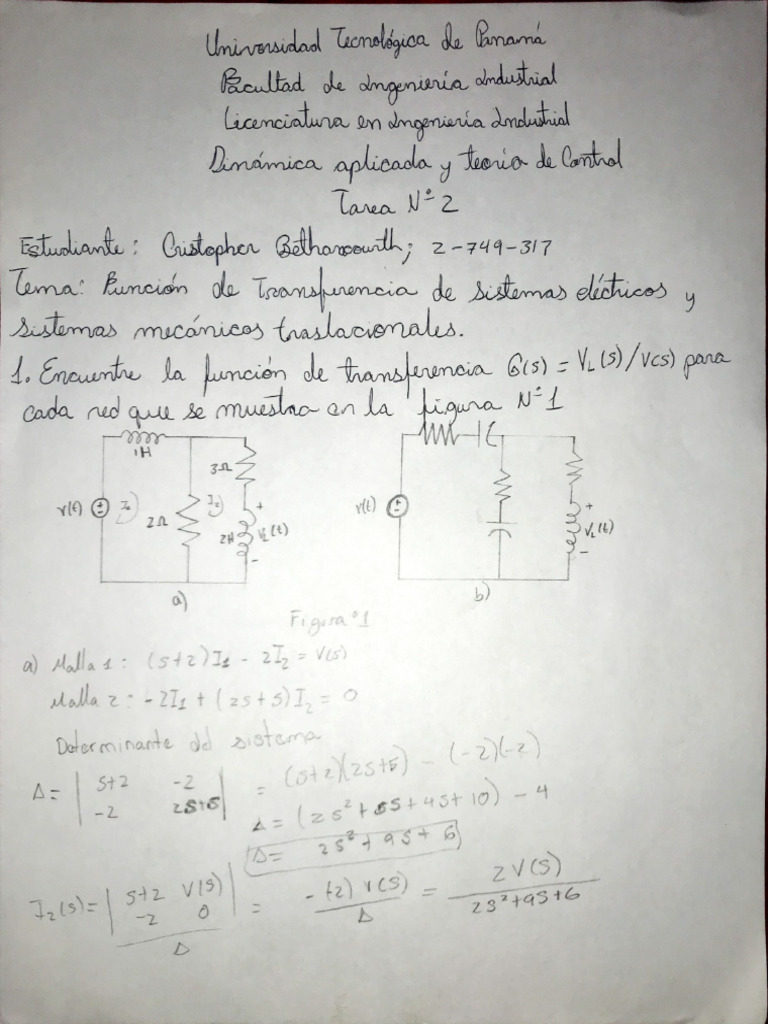 Universidad Tecnológica de Panamá
Facultad de Ingeniería Industrial
Licenciatura en Ingeniería Industrial
Dinámica aplicada y teoría de Control
Tarea N° 2
Estudiante: Cristopher Bethancourth; 2-749-317
Tema: Función de Transferencia de sistemas eléctricos y
sistemas mecánicos traslacionales.
1. Encuentre la función de transferencia G(s) = VL(s)/V(s) para
cada red que se muestra en la figura N° 1
1H
3Ω
v(t)
I1
2Ω
I2
2H
+
VL(t)
-
a)
v(t)
+
VL(t)
-
b)
Figura °1
a) Malla 1: (s+2)I1 - 2I2 = V(s)
Malla 2: -2I1 + (2s+5)I2 = 0
Determinante del sistema
Δ = | s+2 -2 | = (s+2)(2s+5) - (-2)(-2)
| -2 2s+5 |
Δ = (2s² + 5s + 4s + 10) - 4
Δ = 2s² + 9s + 6
I2(s) = | s+2 V(s) | = -(-2) V(s) = 2V(s)
| -2 0 |
Δ Δ 2s²+9s+6